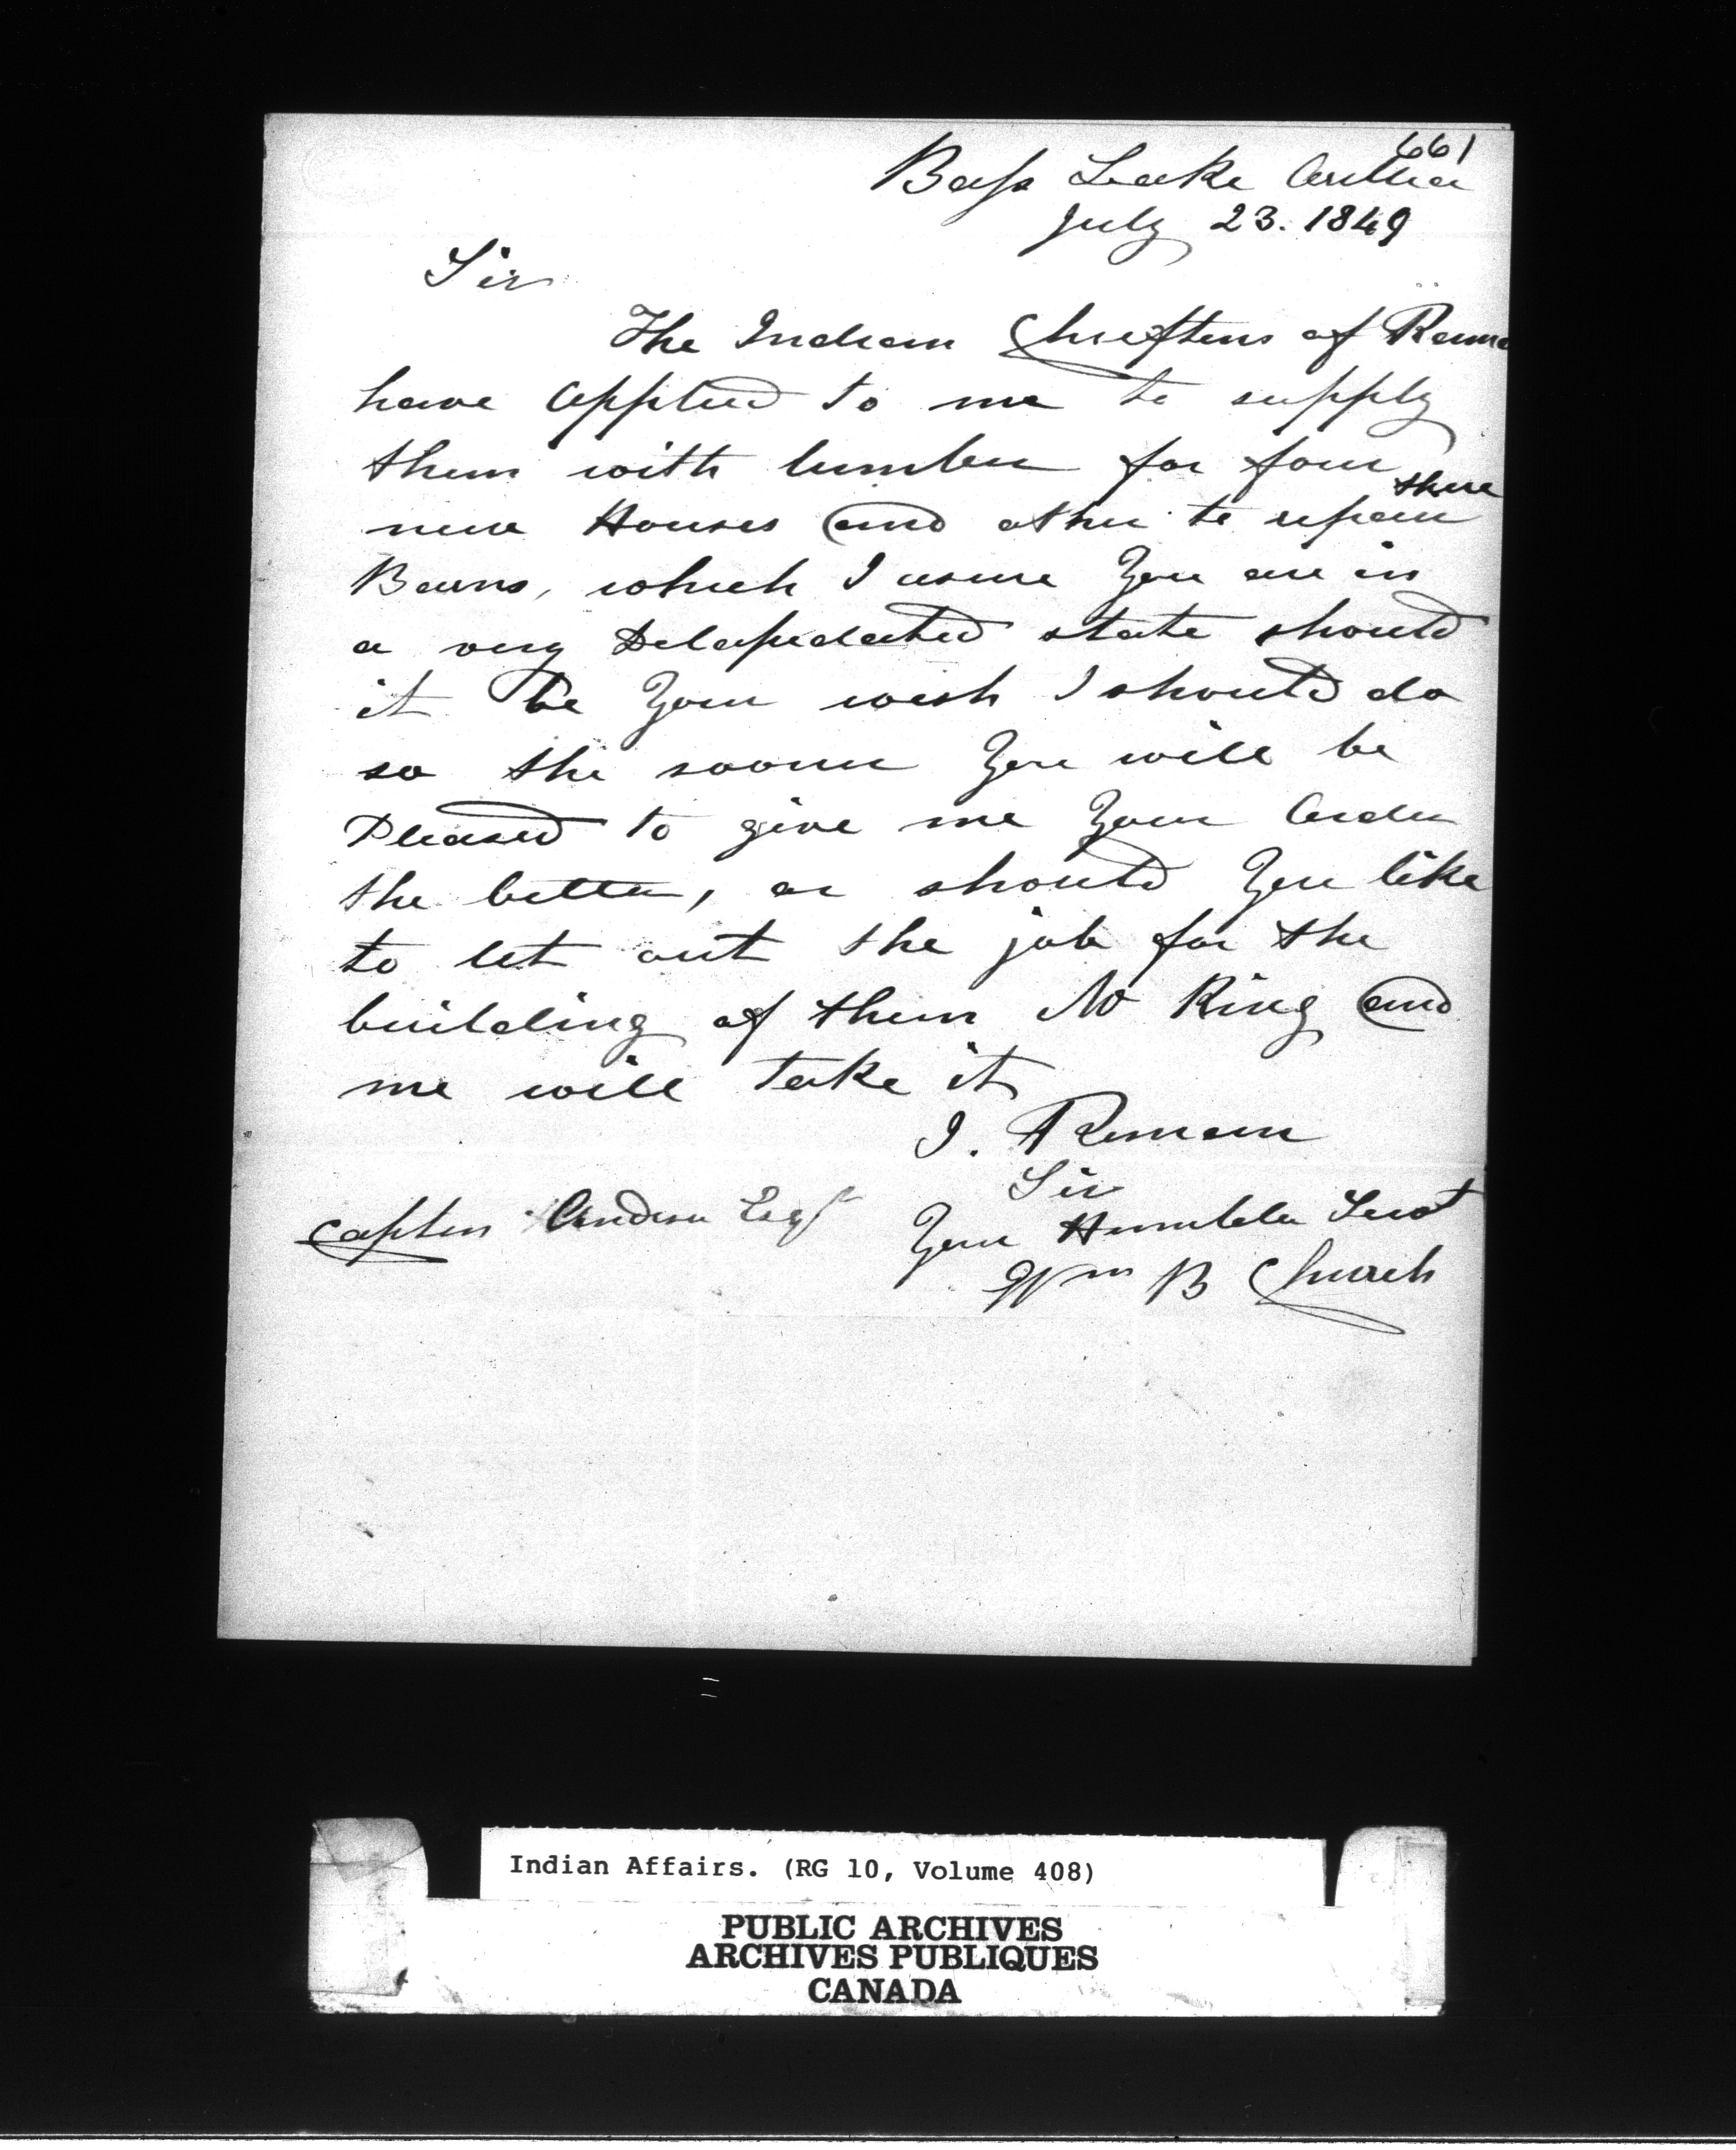 661
Bass Lake Orillia
July 23. 1849
Sir
The Indian Chieftens of Rama
have applied to me to supply
them with lumber for four
new Houses and other to repair there
Barns, which I asure You are in
a very Delapedated state should
it be Your wish I should do
so the sooner You will be
Pleased to give me Your Order
the better, or should You like
to let out the job for the
building of them Mr King and
me will take it
I. Remain
Sir
Your Humble Servt
Wm B Church
Capten Anderson Esqr
Indian Affairs. (RG 10, Volume 408)
PUBLIC ARCHIVES
ARCHIVES PUBLIQUES
CANADA